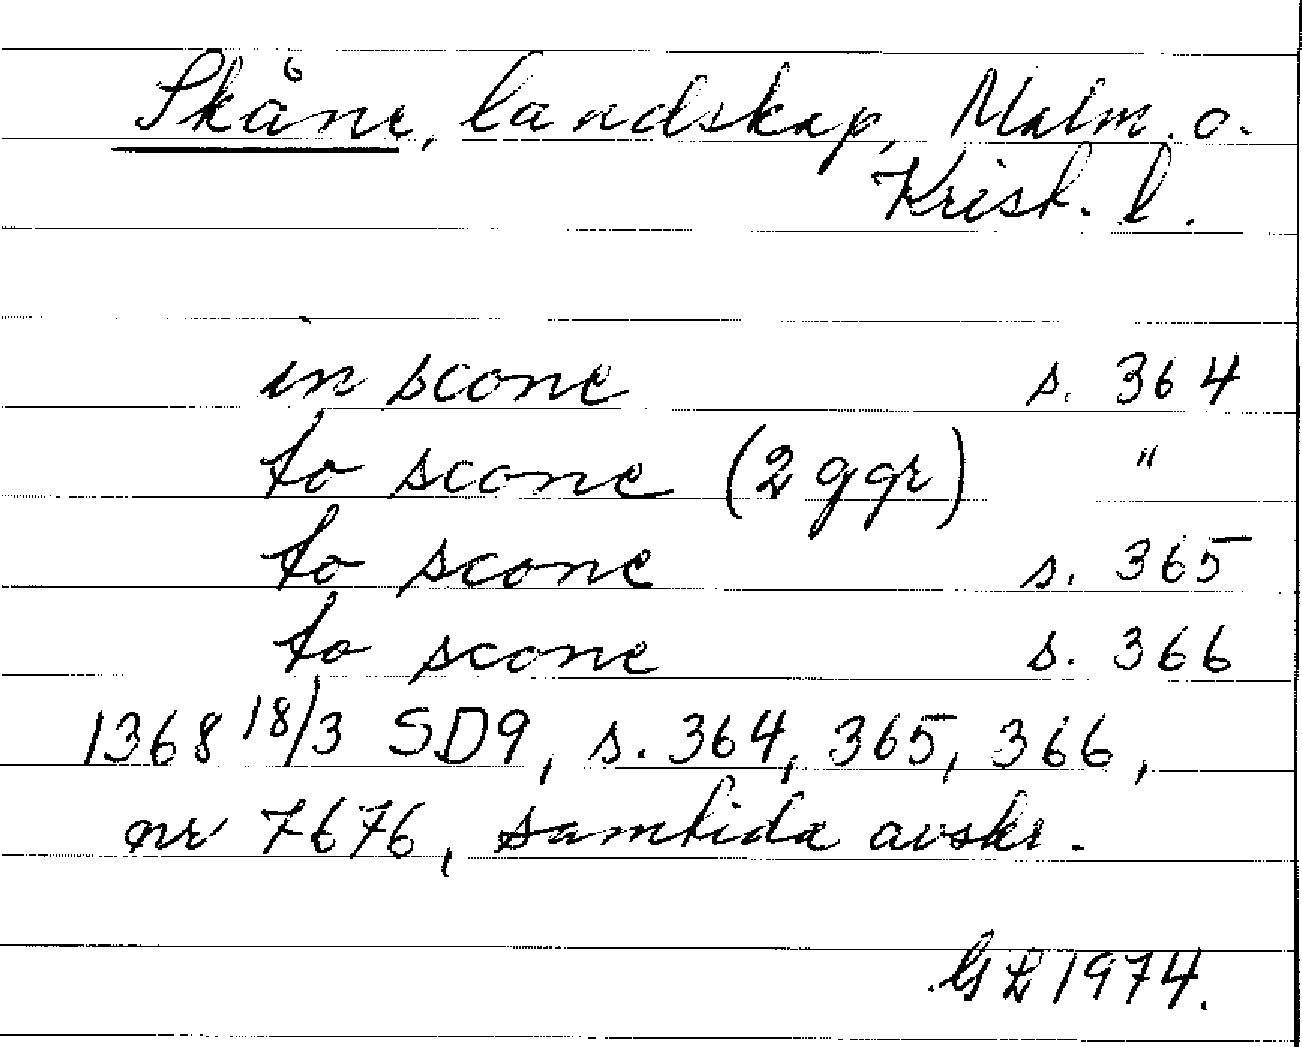 Skåne, landskap, Malm. o.
Krist. l.
in scone s. 364
to scone (2 ggr) "
to scone s. 365
to scone s. 366
1368 18/3 SD9, s. 364, 365, 366,
nr 7676, samtida avskr.
1974.